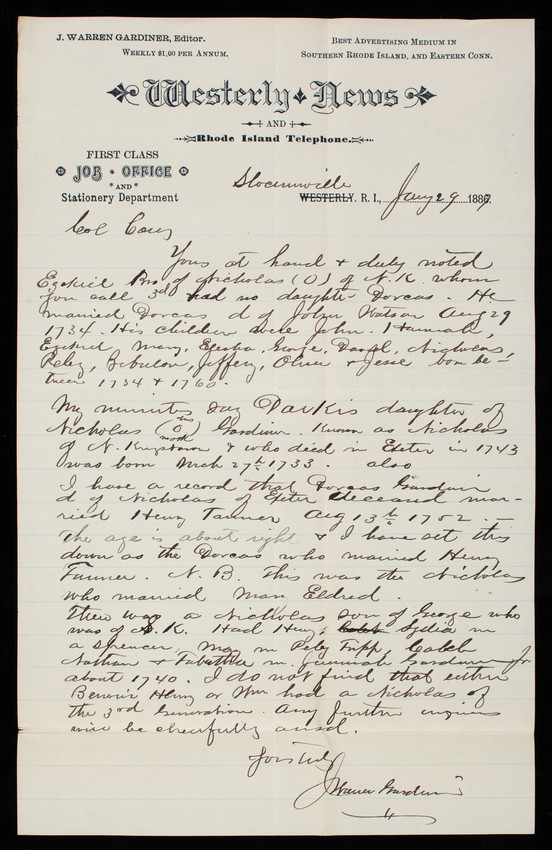 J. WARREN GARDINER, Editor.
WEEKLY $1,00 PER ANNUM.
BEST ADVERTISING MEDIUM IN
SOUTHERN RHODE ISLAND, AND EASTERN CONN.
Westerly News
AND
Rhode Island Telephone.
FIRST CLASS
JOB OFFICE
AND
Stationery Department
Slocumville
WESTERLY, R. I., Jany 29 1889
Col Casey
Yours at hand & duly noted
Ezekiel Bro of Nicholas (O) of N. K. whom
you call 3rd had no daughter Dorcas. He
married Dorcas d of John Watson Aug 29
1734. His children were John. Hannah,
Ezekiel Mary, Elisha, George, David, Nicholas,
Peleg, Zebulon, Jeffery, Oliver & Jesse born be-
tween 1734 & 1760.
My minutes say Darkis daughter of
Nicholas (O) Gardiner. Known as Nicholas
his mark
of N. Kingstown & who died in Exeter in 1743
was born Mch 27th 1733. also
I have a record that Dorcas Gardiner
d of Nicholas of Exeter deceased mar-
ried Henry Tanner Aug 13th 1752. —
The age is about right & I have set this
down as the Dorcas who married Henry
Tanner. N. B. This was the Nicholas
who married Mary Eldred.
There was a Nicholas son of George who
was of S. K. Had Henry, Caleb Lydia m
a Spencer, Mary m Peleg Tripp, Caleb
Nathan & Tabitha m. Jeremiah Gardiner Jr
about 1740. I do not find that either
Benoni Henry or Wm had a Nicholas of
the 3rd Generation. Any further inquiries
will be cheerfully ansd.
Yours Truly
J Warren Gardiner